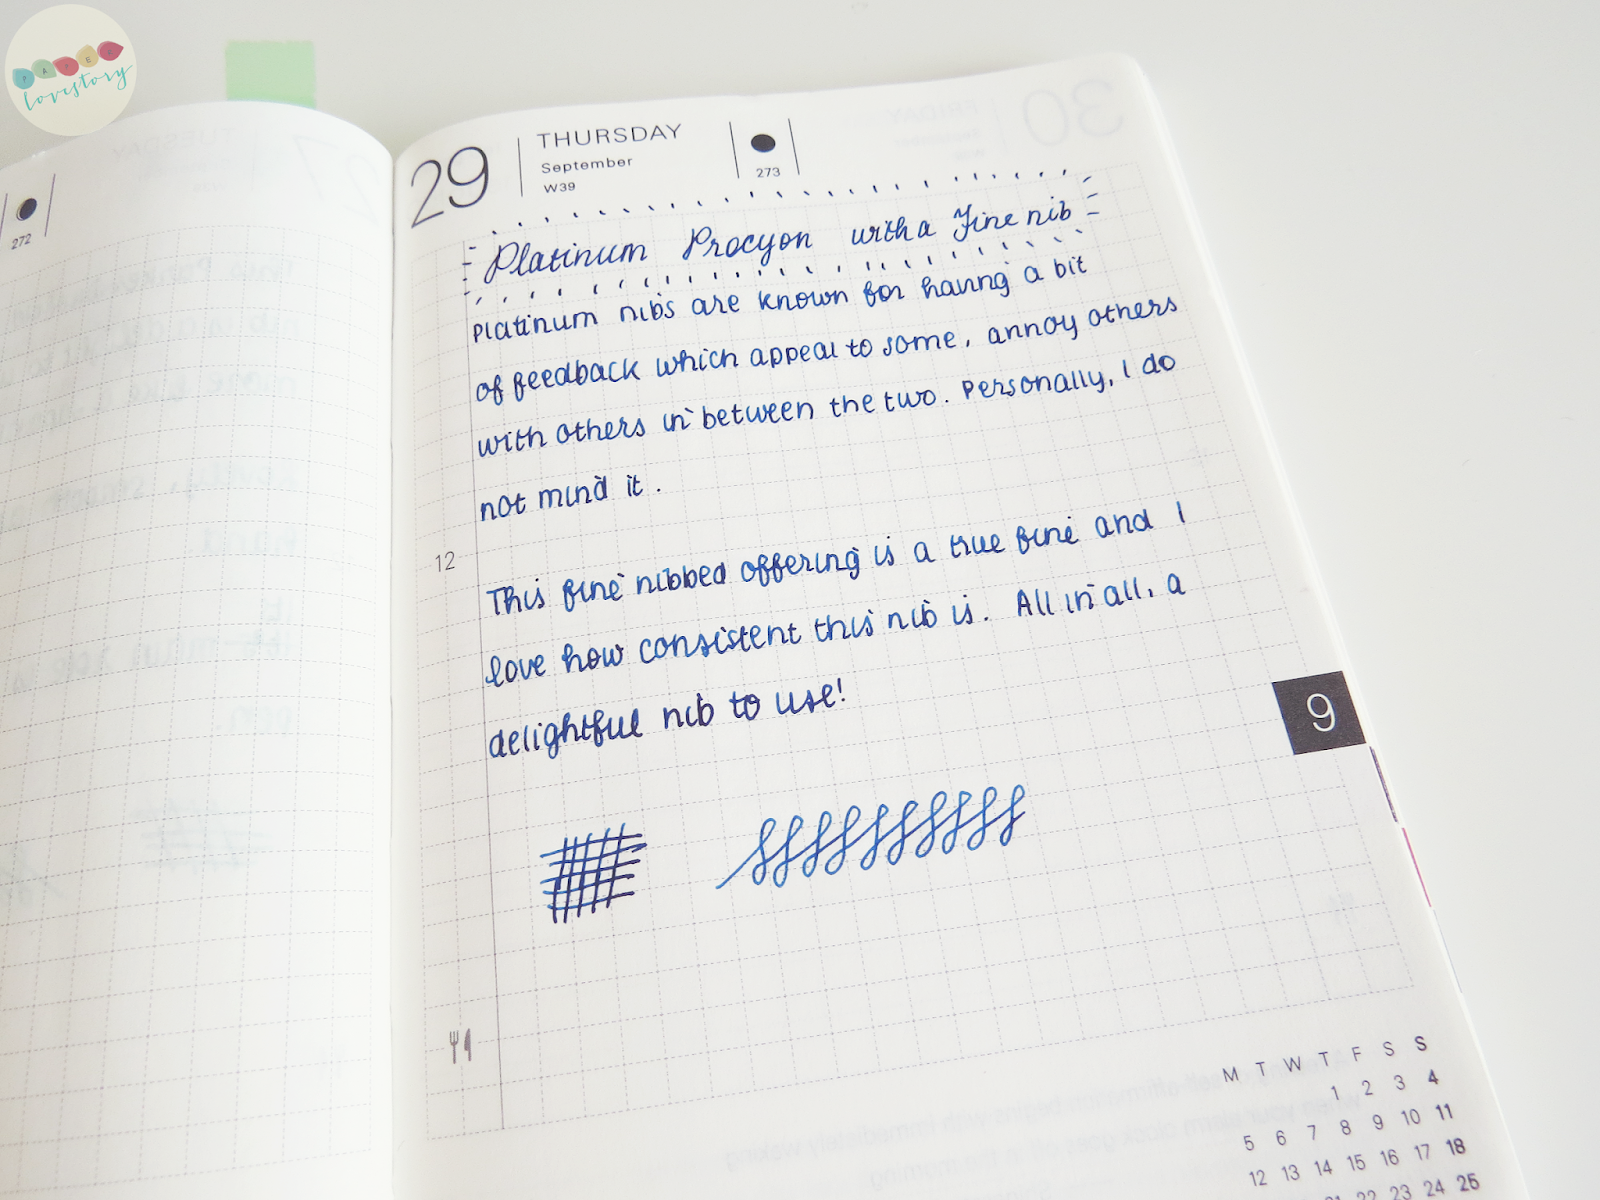 PAPER
lovestory
272
29
THURSDAY
September
W39
273
Platinum Procyon with a Fine nib
Platinum nibs are known for having a bit
of feedback which appeal to some, annoy others
with others in between the two. Personally, I do
not mind it.
12
This fine nibbed offering is a true fine and I
love how consistent this nib is. All in all, a
delightful nib to use!
9
M T W T F S S
1 2 3 4
5 6 7 8 9 10 11
12 13 14 15 16 17 18
21 22 23 24 25